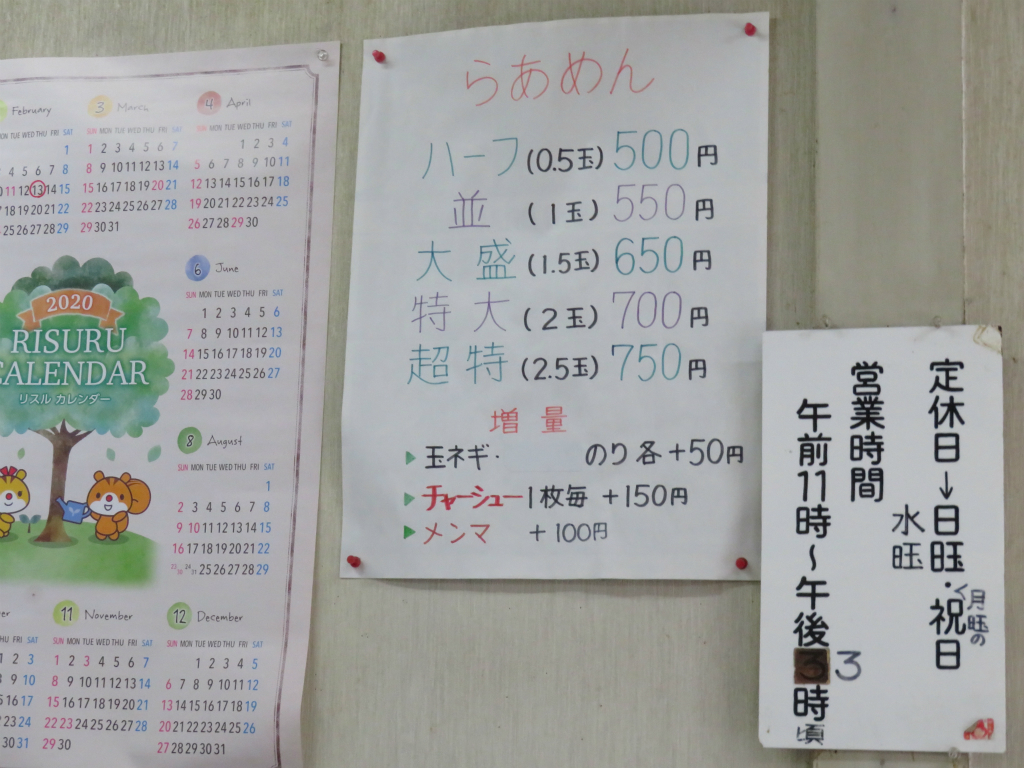 February
MON TUE WED THU FRI SAT
1
4 5 6 7 8
10 11 12 13 14 15
17 18 19 20 21 22
24 25 26 27 28 29
3 March
SUN MON TUE WED THU FRI SAT
1 2 3 4 5 6 7
8 9 10 11 12 13 14
15 16 17 18 19 20 21
22 23 24 25 26 27 28
29 30 31
4 April
SUN MON TUE WED THU FRI SAT
1 2 3 4
5 6 7 8 9 10 11
12 13 14 15 16 17 18
19 20 21 22 23 24 25
26 27 28 29 30
2020
RISURU
CALENDAR
リスル カレンダー
6 June
SUN MON TUE WED THU FRI SAT
1 2 3 4 5 6
7 8 9 10 11 12 13
14 15 16 17 18 19 20
21 22 23 24 25 26 27
28 29 30
8 August
SUN MON TUE WED THU FRI SAT
1
2 3 4 5 6 7 8
9 10 11 12 13 14 15
16 17 18 19 20 21 22
23/30 24/31 25 26 27 28 29
THU FRI SAT
1 2 3
8 9 10
15 16 17
22 23 24
29 30 31
11 November
SUN MON TUE WED THU FRI SAT
1 2 3 4 5 6 7
8 9 10 11 12 13 14
15 16 17 18 19 20 21
22 23 24 25 26 27 28
29 30
12 December
SUN MON TUE WED THU FRI SAT
1 2 3 4 5
6 7 8 9 10 11 12
13 14 15 16 17 18 19
20 21 22 23 24 25 26
27 28 29 30 31
らあめん
ハーフ (0.5玉) 500円
並 (1玉) 550円
大盛 (1.5玉) 650円
特大 (2玉) 700円
超特 (2.5玉) 750円
増量
▶ 玉ネギ・ のり 各+50円
▶ チャーシュー 1枚毎 +150円
▶ メンマ +100円
定休日→日旺・祝日
月旺の
水旺
営業時間
午前11時〜午後3時頃
3